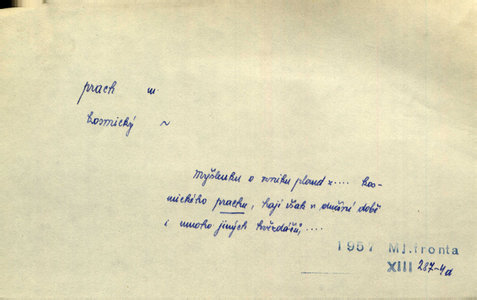 prach m
kosmický ~
Myšlenku o vzniku planet z .... kos-
mického prachu, hájí však v dnešní době
i mnoho jiných hvězdářů, ....
1957 Ml.fronta
XIII 287-4d